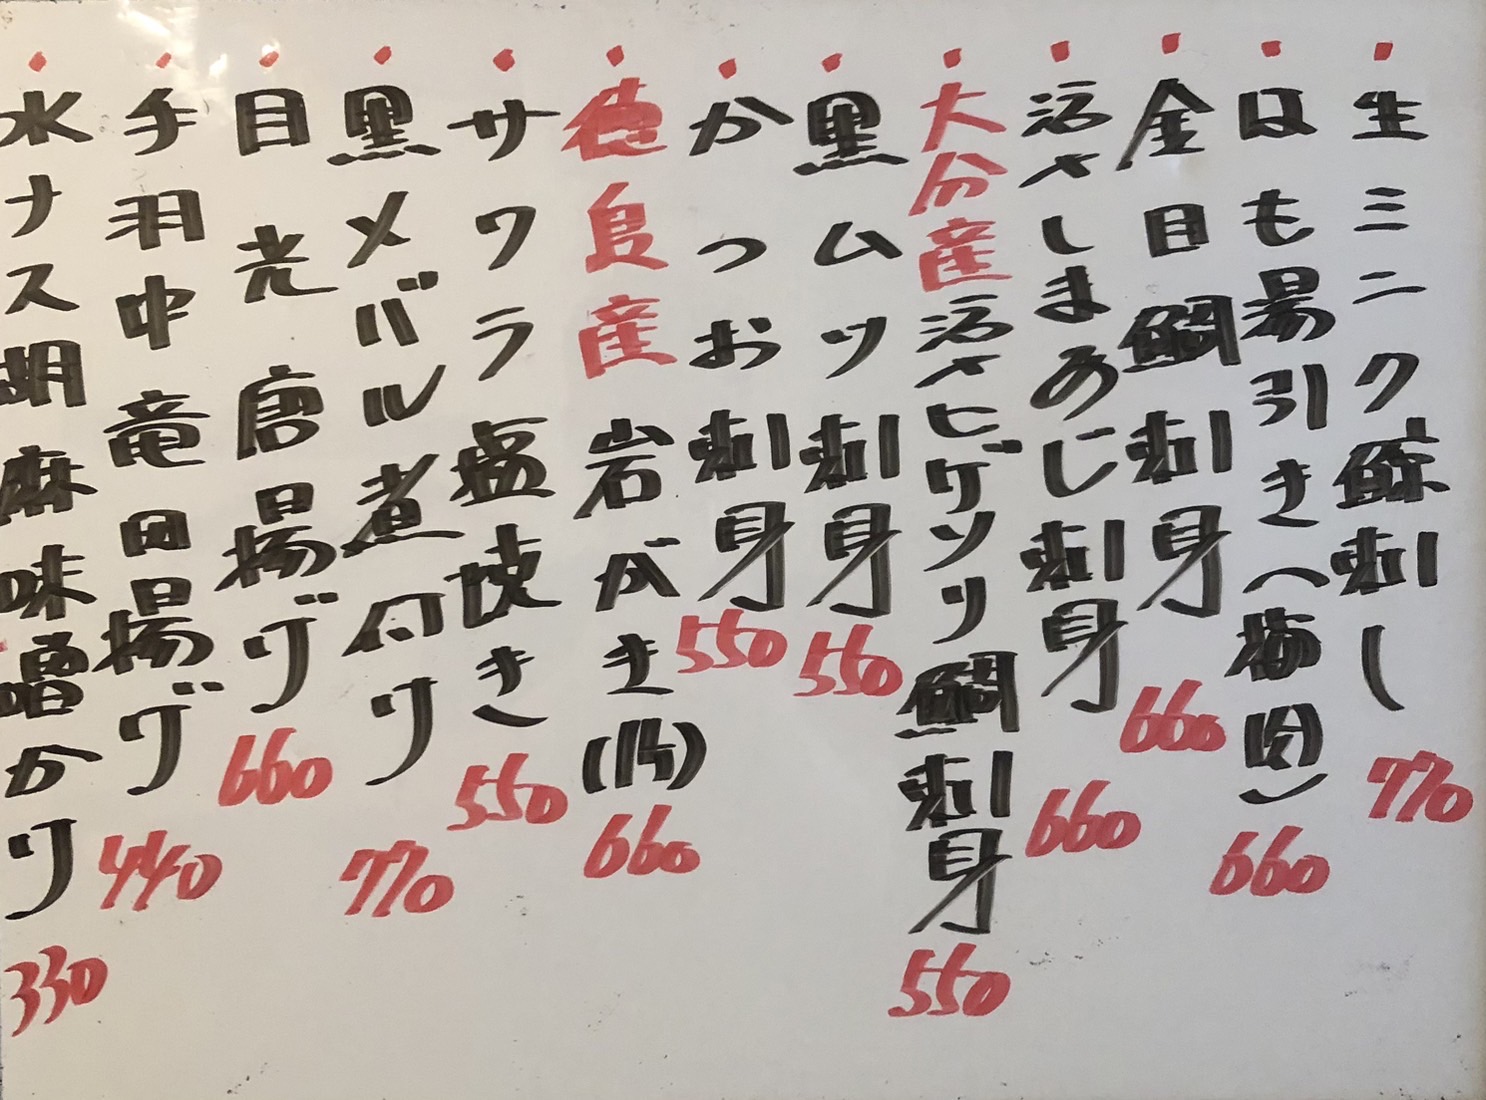 ・生ミニク鯨刺し 770
・はも湯引き(梅肉) 660
・金目鯛刺身 660
・活〆しまあじ刺身 660
・大分産活〆ヒゲソリ鯛刺身 550
・黒ムツ刺身 550
・かつお刺身 550
・徳島産岩がき(1ヶ) 660
・サワラ塩焼き 550
・黒メバル煮付け 770
・目光唐揚げ 660
・手羽中竜田揚げ 440
・水ナス胡麻味噌かけ 330